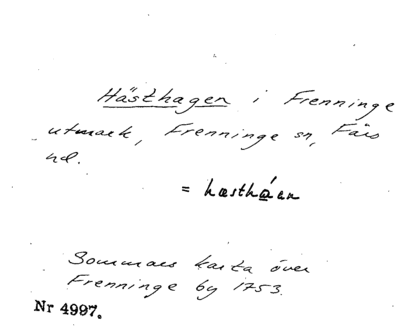 Hästhagen i Frenninge
utmark, Frenninge sn, Färs
hd.
= hæsthá̱en
Sommars karta över
Frenninge by 1753.
Nr 4997.